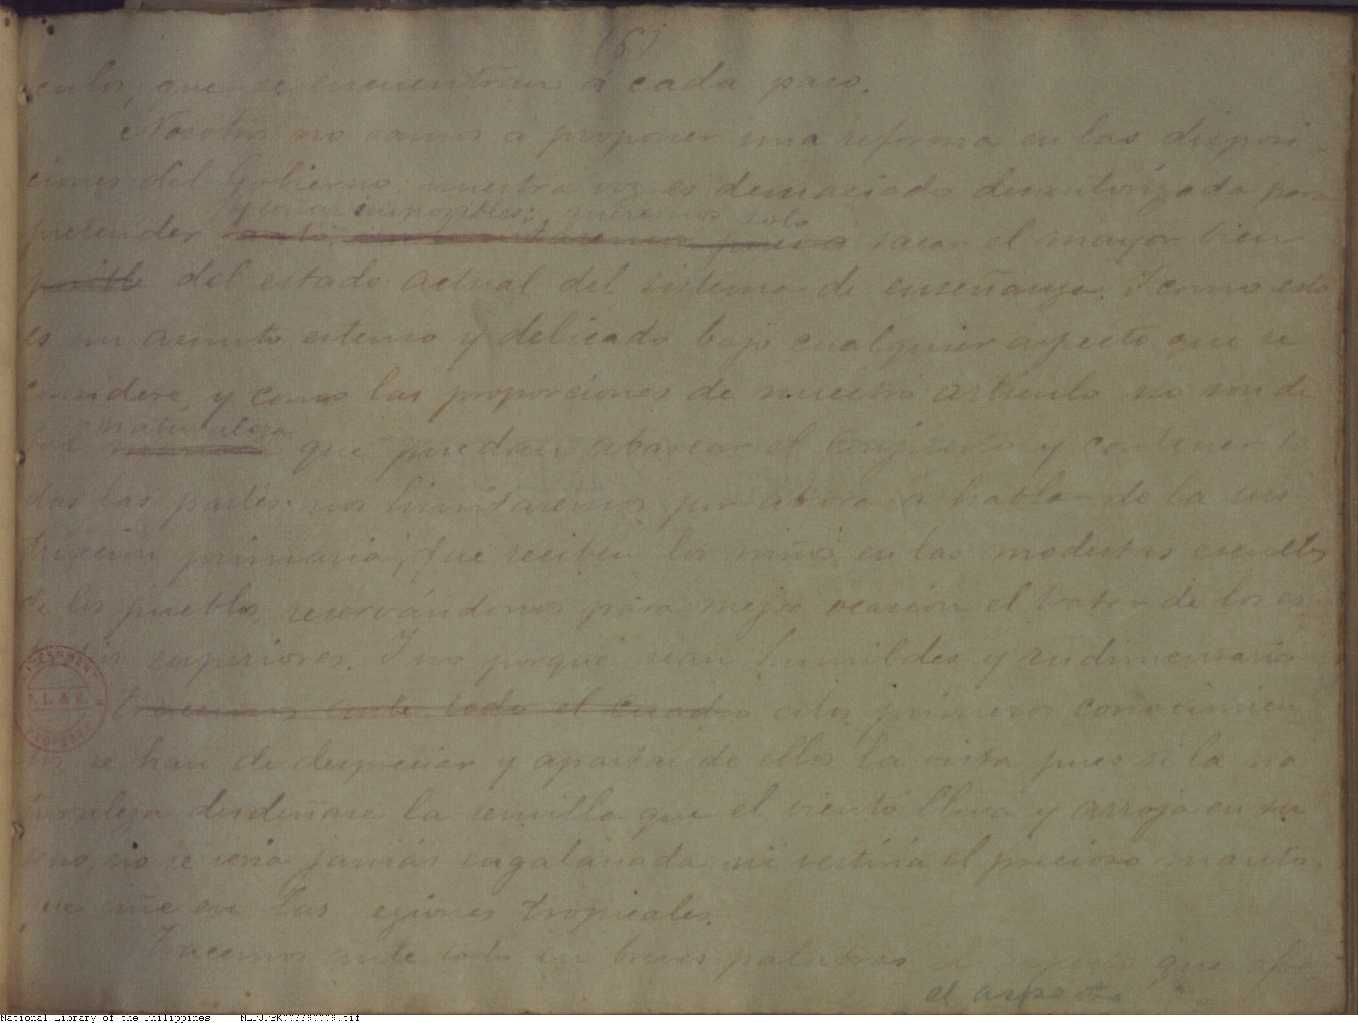 (6)
culos, que se encuentran á cada paso.
Nosotros no vamos a proponer una reforma en las disposi-
ciones del Gobierno, nuestra voz es demasiado desautorizada para
y cosas imposibles; queremos solo
pretender sacar el mayor bien
posible del estado actual del sistema de enseñanza. Y como esto
es un asunto estenso y delicado bajo cualquier aspecto que se
considere, y como las proporciones de nuestro artículo no son de
naturaleza
tal que puedan abarcar el conjunto y contener to
das las partes, nos limitaremos por ahora á hablar de la ins
trucción primaria, que reciben los niños en las modestas escuelas
de los pueblos, reservándonos para mejor ocasión el tratar de los es
tudios superiores. Y no porque sean humildes y rudimentarios
tracemos ante todo el cuadro estos primeros conocimien
tos se han de despreciar y apartar de ellos la vista pues si la na
turaleza desdeñase la semilla que el viento lleva y arroja en su
seno, no se vería jamás engalanada ni vestiría el precioso manto
que ciñe en las regiones tropicales.
Tracemos ante todo en breves palabras que
el aspecto
National Library of the Philippines